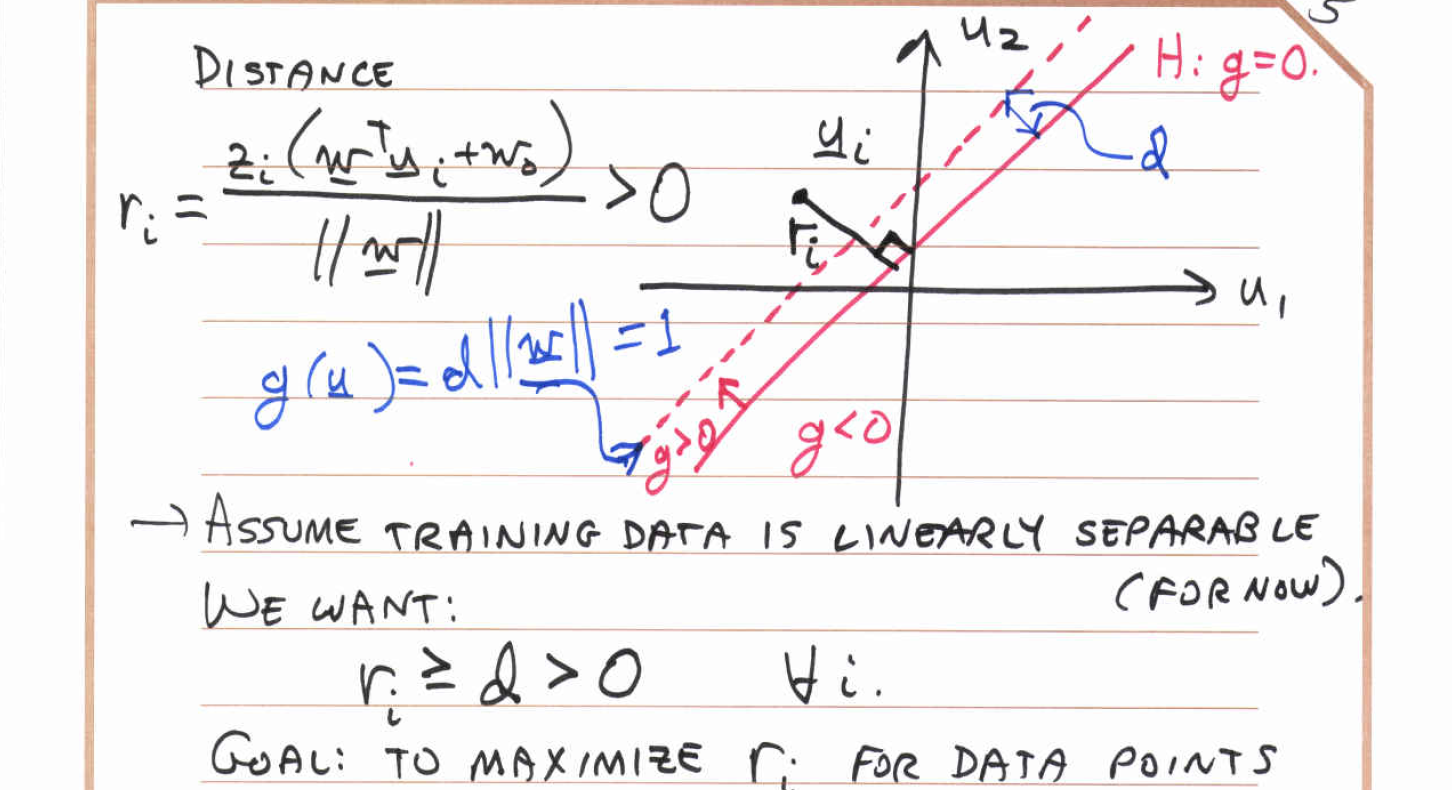 5
DISTANCE
r_i = z_i (w^T u_i + w_0) / ||w|| > 0
u_2
H: g=0.
u_i
d
r_i
u_1
g(u) = d||w|| = 1
g>0
g<0
→ ASSUME TRAINING DATA IS LINEARLY SEPARABLE
(FOR NOW).
WE WANT:
r_i ≥ d > 0 ∀ i.
GOAL: TO MAXIMIZE r_i FOR DATA POINTS